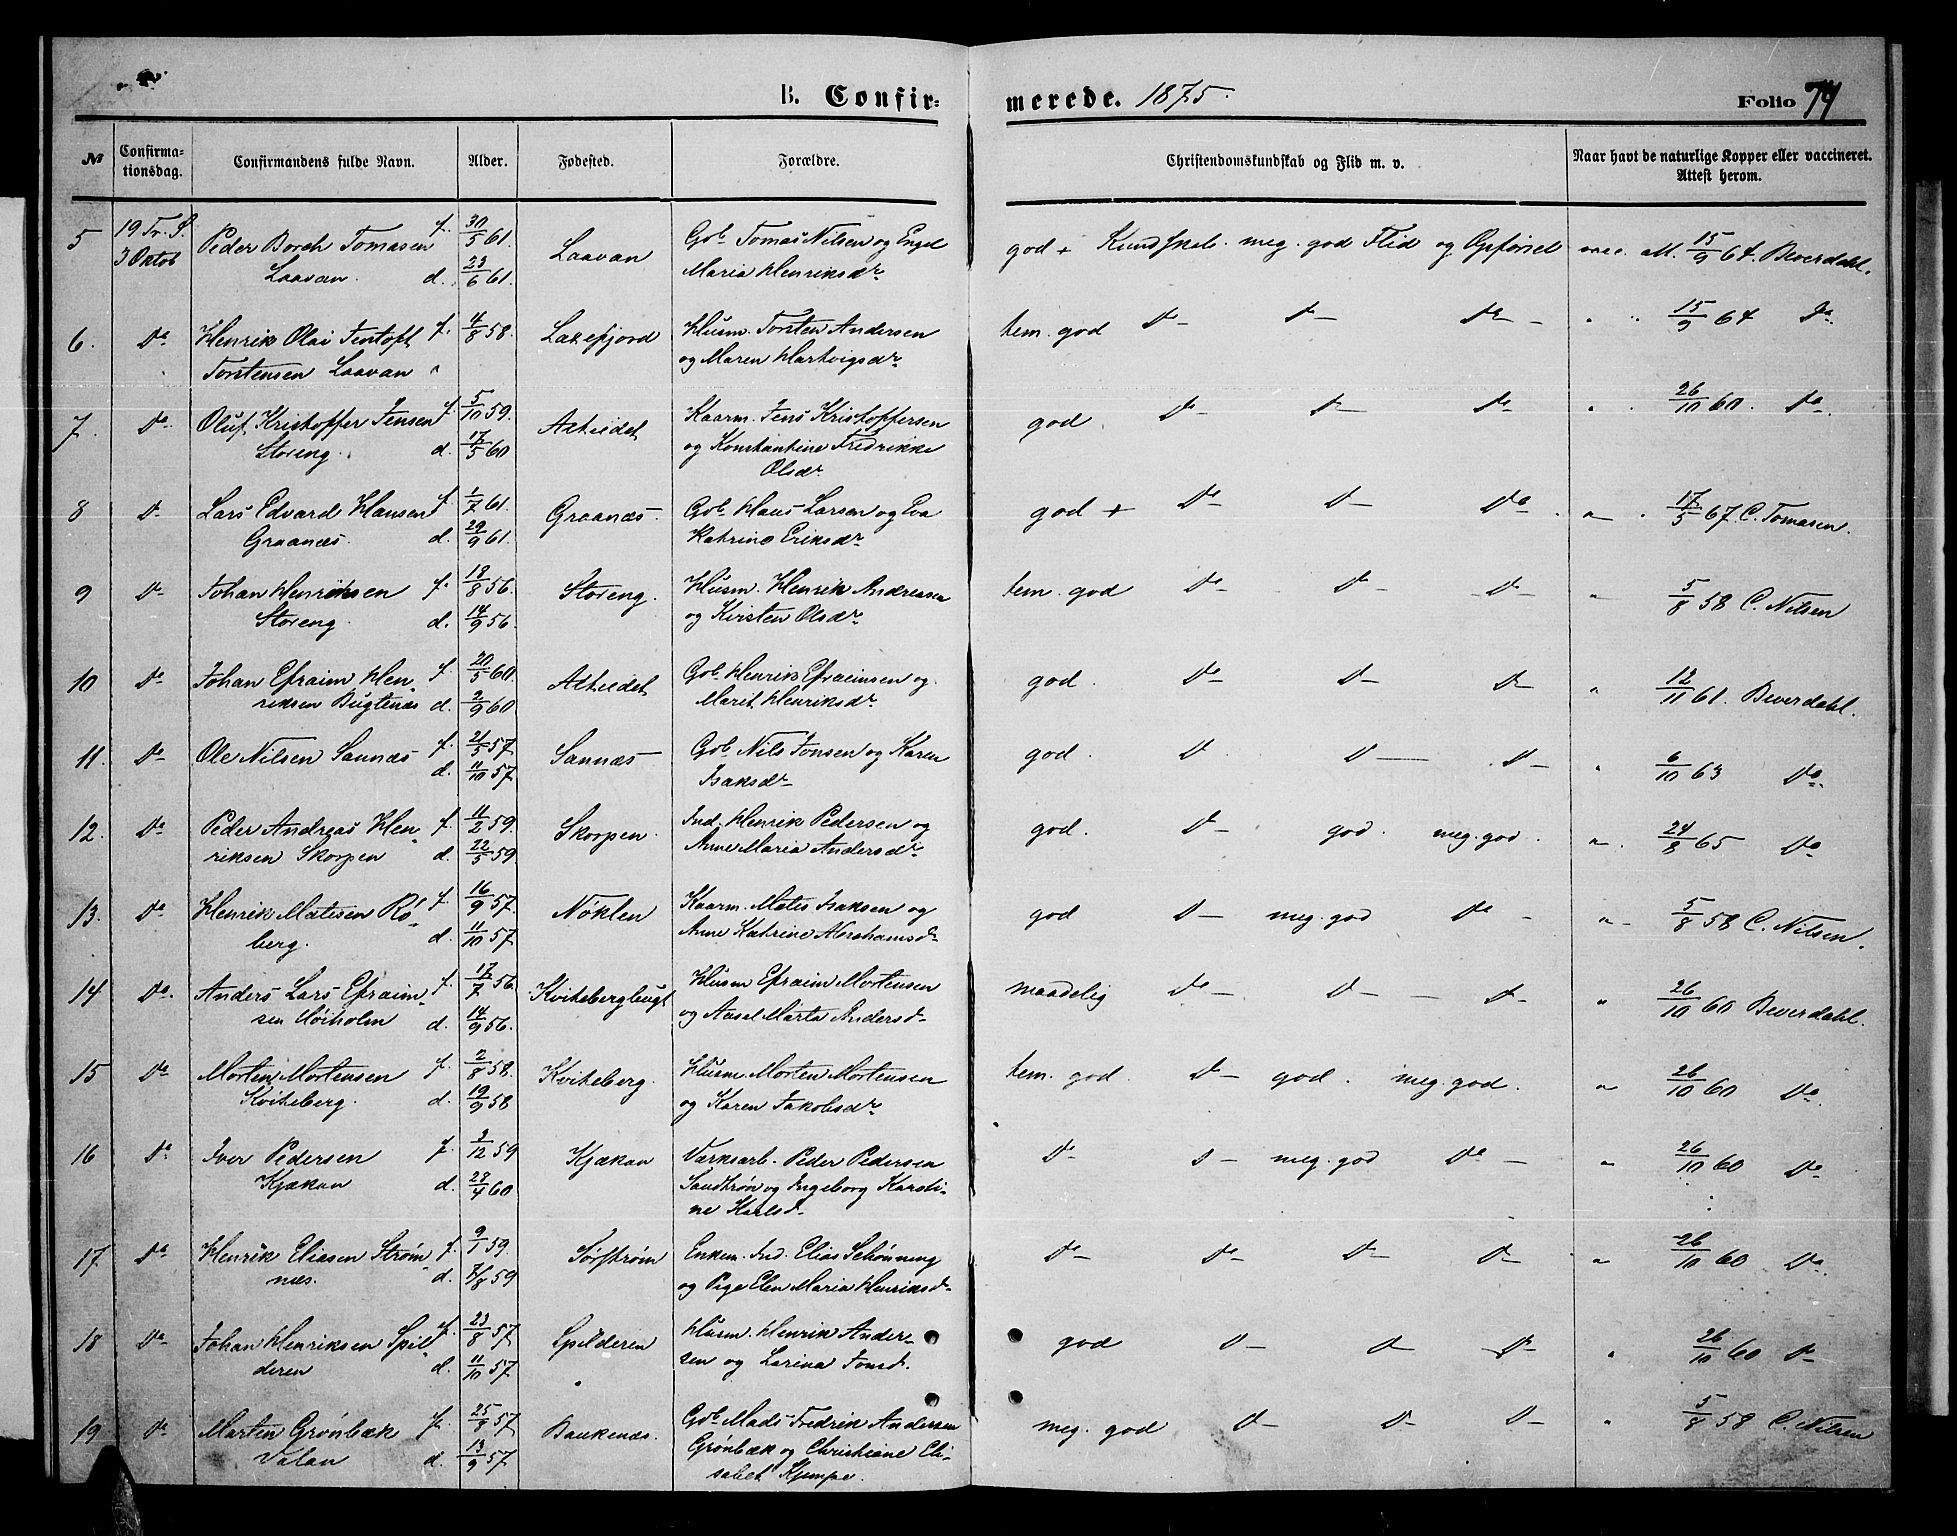 B. Confirmerede. 1875. Folio 74
№ Confirmationsdag. Confirmandens fulde Navn. Alder. Fødested. Forældre. Christendomskundskab og Flid m. v. Naar havt de naturlige Kopper eller vaccineret. Attest herom.
5 19 Tr. S. Peder Borch Tomasen f. 30/5 61. Laavan Gb. Tomas Nilsen og Engel god + Kundskab. meg. god Flid og Opførsel vac. Att. 15/9 64. Beverdahl.
3 Oktob Laavan. d. 23/6 61. Maria Henriksdr
6. Do Henrik Olai Tentoft f. 4/8 58. Laxefjord Husm. Torsten Andersen tem. god Do Do Do " " 15/9 64 Do.
Torstensen Laavan " og Maren Hartvigsdr
7. Do Oluf Kristoffer Jensen f. 5/10 59. Alteidet Kaarm. Jens Kristoffersen god Do Do Do " " 26/10 60. Do.
Storeng. d. 17/5 60 og Konstantine Fredrikke
Olsdr.
8 Do Lars Edvard Hansen f. 1/7 61. Graanæs. Gb. Hans Larsen og Eva god + Do Do Do. " " 17/5 67 C. Tomasen.
Graanæs. d. 29/9 61. Katrine Eriksdr
9 Do Johan Henriksen f. 18/8 56. Storeng. Husm. Henrik Andreasen tem. god Do Do Do " 5/8 58 C. Nilsen
Storeng. d. 14/9 56. og Kirsten Olsdr
10 Do Johan Efraim Hen- f. 20/5 60. Alteidet Gb. Henrik Efraimsen og god. Do Do Do " 12/11 61. Beverdahl.
riksen Bugtenæs d. 2/9 60 Marit Henriksdr.
11. Do Ole Nilsen Sannæs f. 21/5 57. Sannæs Gb. Nils Jonsen og Karen god. Do Do Do " 6/10 63 Do.
d. 11/10 57. Isaksdr
12. Do Peder Andreas Hen- f. 11/2 59. Skorpen. Ind. Henrik Pedersen og god. Do god. meg. god. " 24/8 65 Do
riksen Skorpen d. 22/5 59. Anne Maria Andersdr.
13. Do Henrik Matisen Rø- f. 16/9 57. Nøklen Kaarm. Matis Isaksen og god Do meg. god Do " 5/8 58 C. Nilsen.
berg. d. 11/10 57. Anne Katrine Abrahamsd
14 Do. Anders Lars Efraim- f. 17/7 56. Kvitebergbugt Husm Efraim Mortensen maadelig Do Do Do " 26/10 60 Beverdahl.
sen Høiholm d. 14/9 56. og Aasel Marta Andersd
15 Do Morten Mortensen f. 2/8 58. Kviteberg. Husm Morten Mortensen tem. god. Do god. meg. god. " 26/10 60 Do.
Kviteberg. d. 19/9 58 og Karen Jakobsdr
16 Do Iver Pedersen f. 3/12 59 Kjækan Værksarb. Peder Pedersen Do Do meg. god Do " 26/10 60 Do
Kjækan d. 28/4 60. Sandtrøn og Ingeborg Karsti-
ne Karlsd
17. Do Henrik Eliasen Strøm- f. 9/1 59. Sørstrøm Enkem. Ind. Elias Schønning Do Do Do Do " 26/10 60 Do.
næs. d. 7/8 59 og Pige Elen Maria Henriksd
18 Do Johan Henriksen Spil- f. 23/8 57. Spilderen Husm. Henrik Ander- god Do Do Do " 26/10 60 Do
deren d. 11/10 57. sen og Larina Jonsd.
19 Do Marten Grønbæk f. 25/8 57. Baukenæs. Gb. Mads Fredrik Andersen meg. god Do Do Do " 5/8 58 C. Nilsen
Valan d. 13/9 57. Grønbæk og Christiane Eli-
sabet Kjempe.